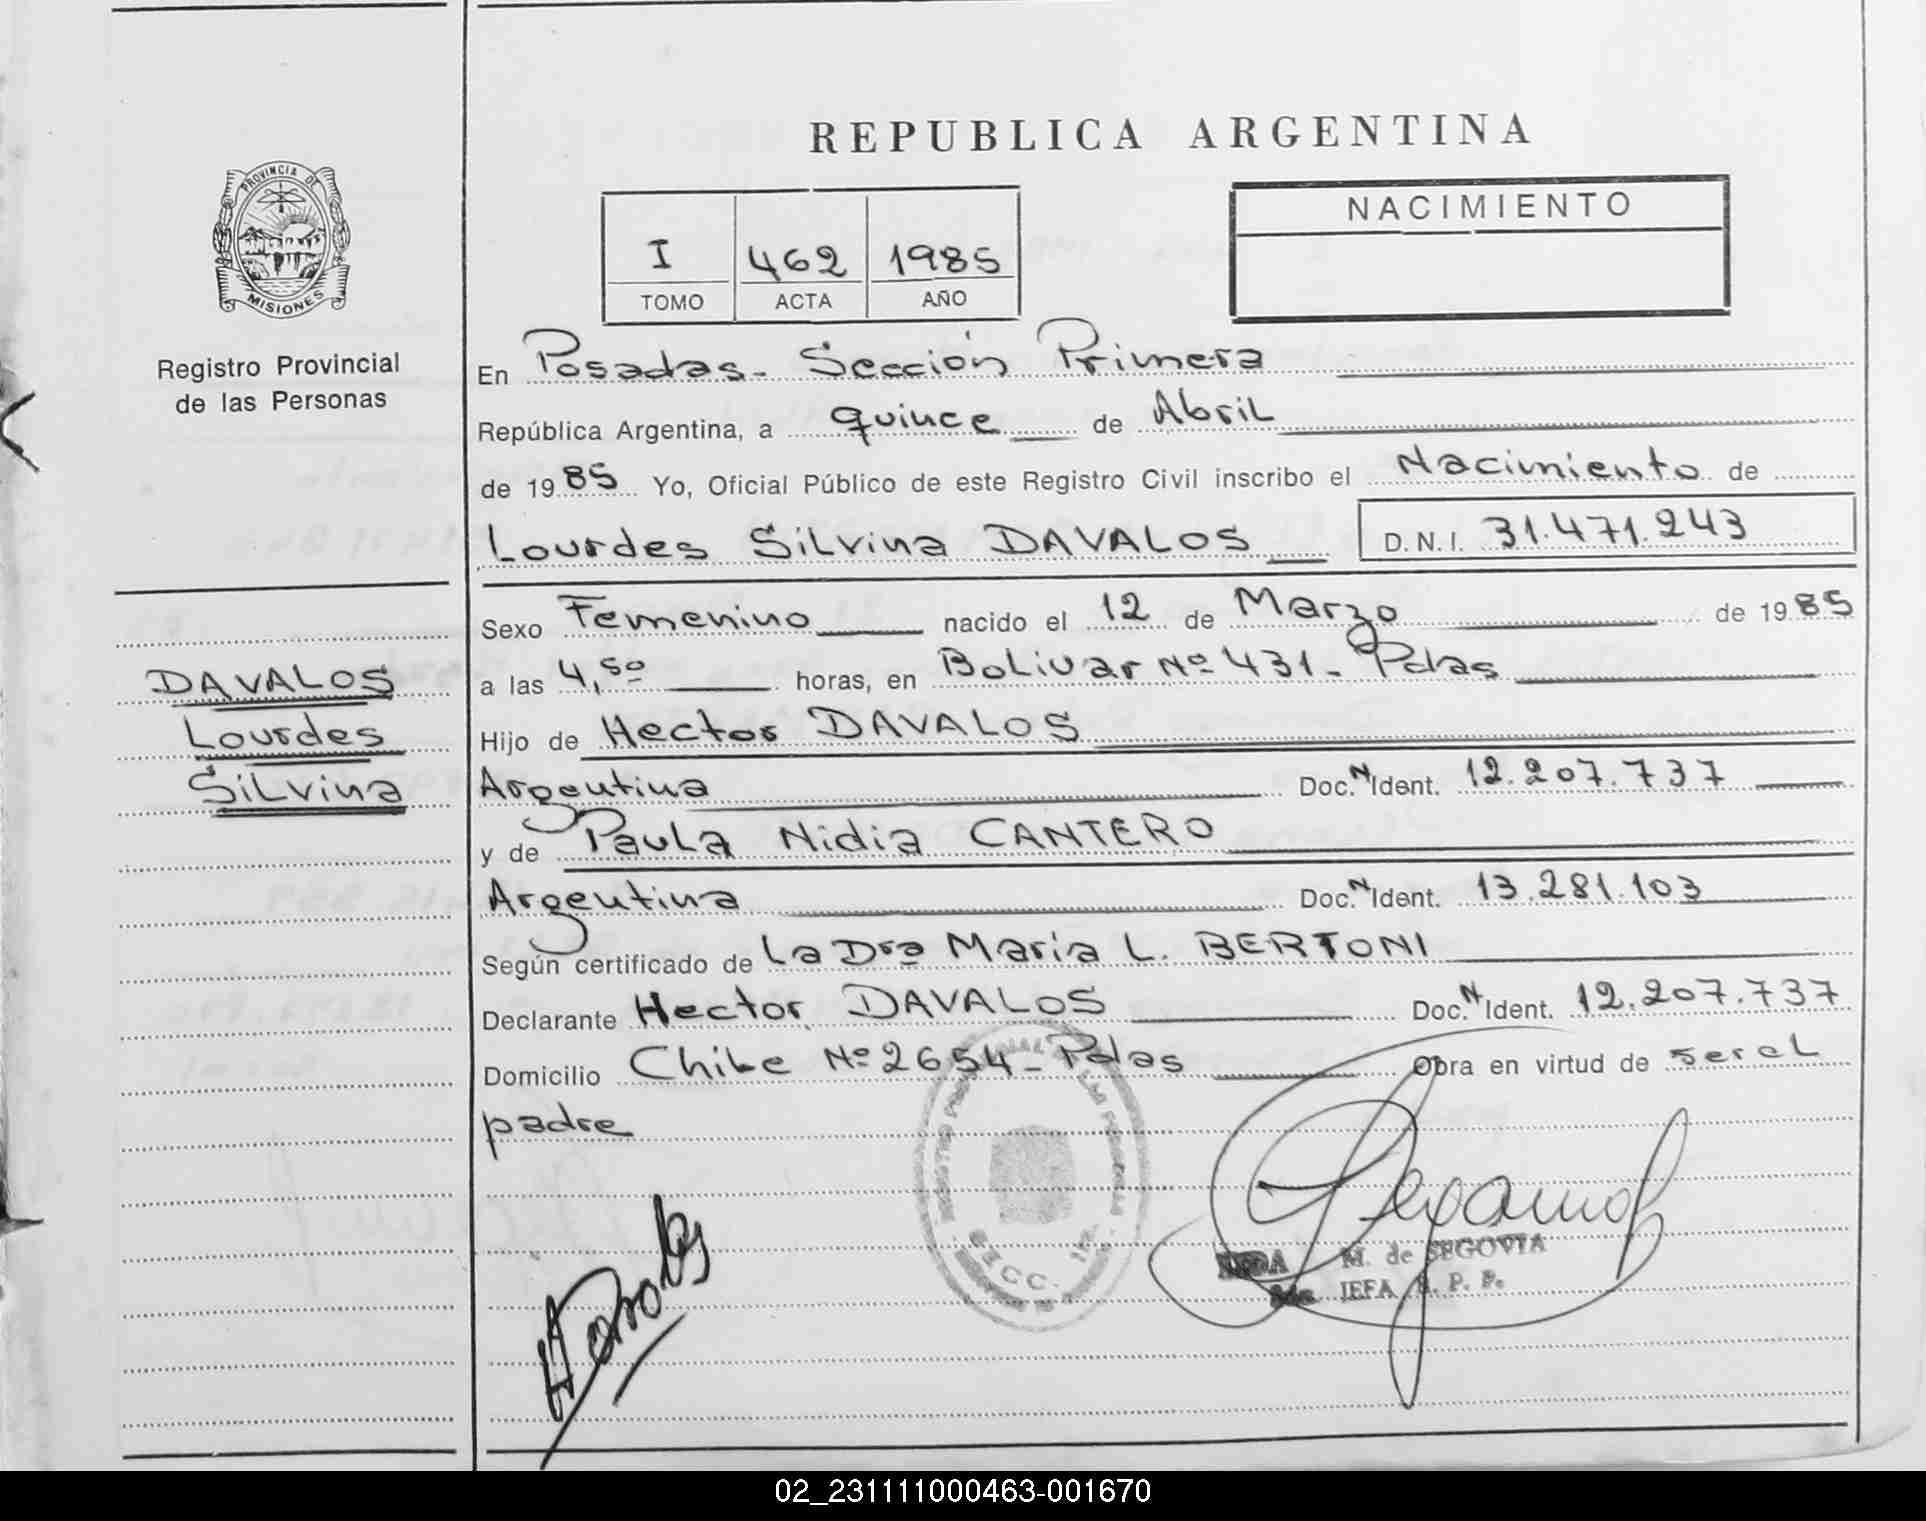 REPUBLICA ARGENTINA
PROVINCIA DE
MISIONES
Registro Provincial
de las Personas
I 462 1985
TOMO ACTA AÑO
NACIMIENTO
En Posadas - Sección Primera
República Argentina, a quince de Abril
de 1985 Yo, Oficial Público de este Registro Civil inscribo el Nacimiento de
Lourdes Silvina DAVALOS D.N.I. 31.471.243
Sexo Femenino nacido el 12 de Marzo de 1985
a las 4,50 horas, en Bolivar Nº 431 - Pdas
Hijo de Hector DAVALOS
Argentina Doc. N Ident. 12.207.737
y de Paula Nidia CANTERO
Argentina Doc. N Ident. 13.281.103
Según certificado de La Dra Maria L. BERTONI
Declarante Hector DAVALOS Doc. N Ident. 12.207.737
Domicilio Chile Nº 2654 - Pdas Obra en virtud de ser el
padre
DAVALOS
Lourdes
Silvina
M. de SEGOVIA
JEFA R. P. P.
02_231111000463-001670